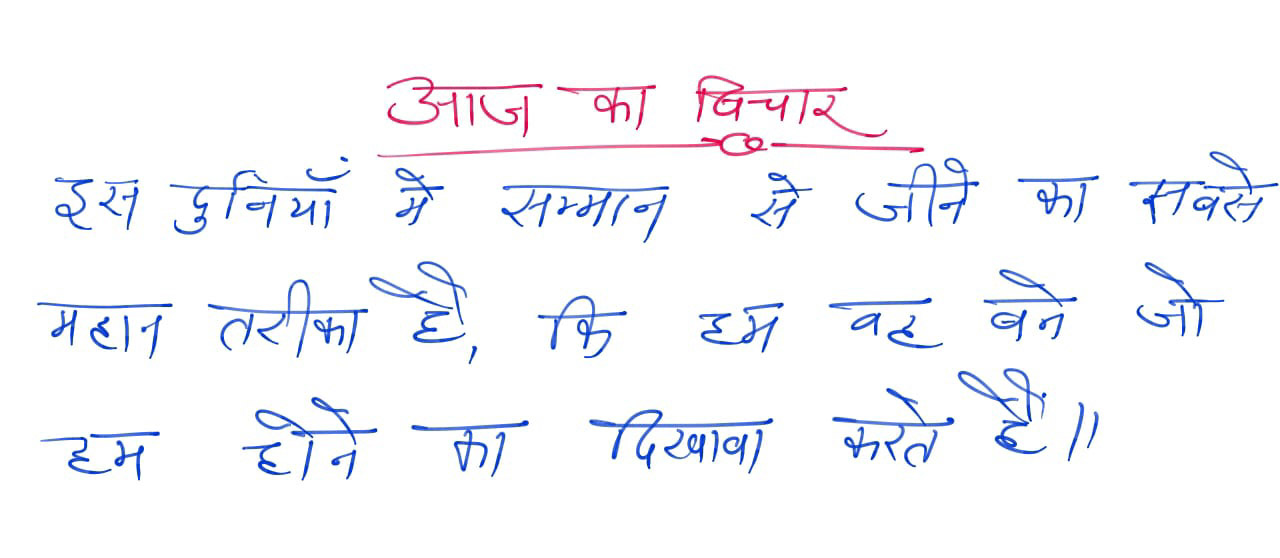 आज का विचार
इस दुनियाँ मे सम्मान से जीने का सबसे
महान तरीका है, कि हम वह बने जो
हम होने का दिखावा करते हैं॥